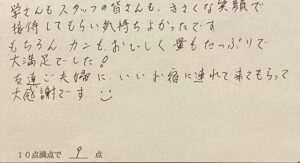 堂さんもスタッフの皆さんも、きさくな笑顔で
接待してもらい気持ちよかったです
もちろん、カニも、おいしく量もたっぷりで
大満足でした!
友達ご夫婦に、いいお宿に連れて来てもらって
大感謝です
10点満点で 9 点